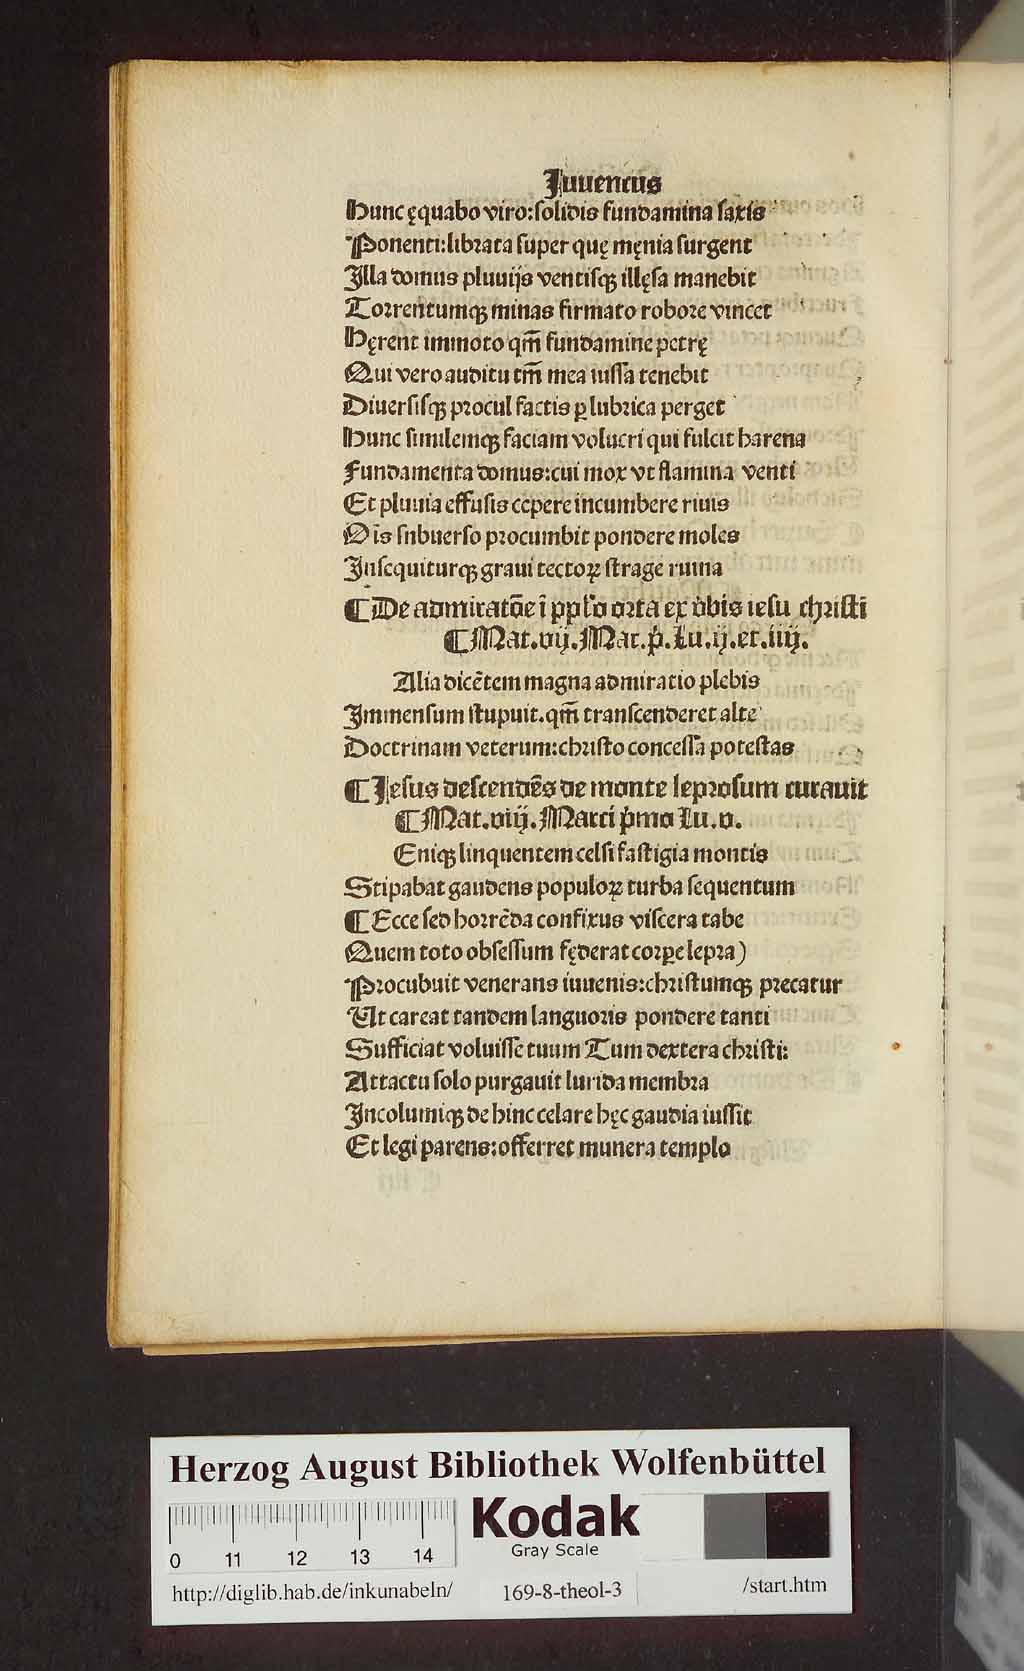 Juuencus
Hunc ęquabo viro:solidis fundamina saxis
Ponenti:librata super quę męnia surgent
Illa domus pluuijs ventisqꝫ illęsa manebit
Torrentumqꝫ minas firmato robore vincet
Hęrent immoto qm̄ fundamine petrę
Qui vero auditu tm̄ mea iussa tenebit
Diuersisqꝫ procul factis ꝑ lubrica perget
Hunc similemqꝫ faciam volucri qui fulcit harena
Fundamenta domus:cui mox vt flamina venti
Et pluuia effusis cępere incumbere riuis
Ois subuerso procumbit pondere moles
Insequiturqꝫ graui tectoꝝ strage ruina
¶ De admiratōe ī pplo orta ex v̓bis iesu christi
¶ Mat.vij.Mar.p̓.Lu.ij.et.iiij.
Alia dicētem magna admiratio plebis
Immensum stupuit.qm̄ transcenderet alte
Doctrinam veterum:christo concessa potestas
¶ Jesus descendēs de monte leprosum curauit
¶ Mat.viij.Marci p̓mo Lu.v.
Eniqꝫ linquentem celsi fastigia montis
Stipabat gaudens populoꝝ turba sequentum
¶ Ecce sed horrēda confixus viscera tabe
Quem toto obsessum fęderat corꝑe lepra)
Procubuit venerans iuuenis:christumqꝫ precatur
Ut careat tandem languoris pondere tanti
Sufficiat voluisse tuum Tum dextera christi:
Attactu solo purgauit lurida membra
Incolumiqꝫ de hinc celare hęc gaudia iussit
Et legi parens:offerret munera templo
Herzog August Bibliothek Wolfenbüttel
Kodak
Gray Scale
0 11 12 13 14
http://diglib.hab.de/inkunabeln/ 169-8-theol-3 /start.htm